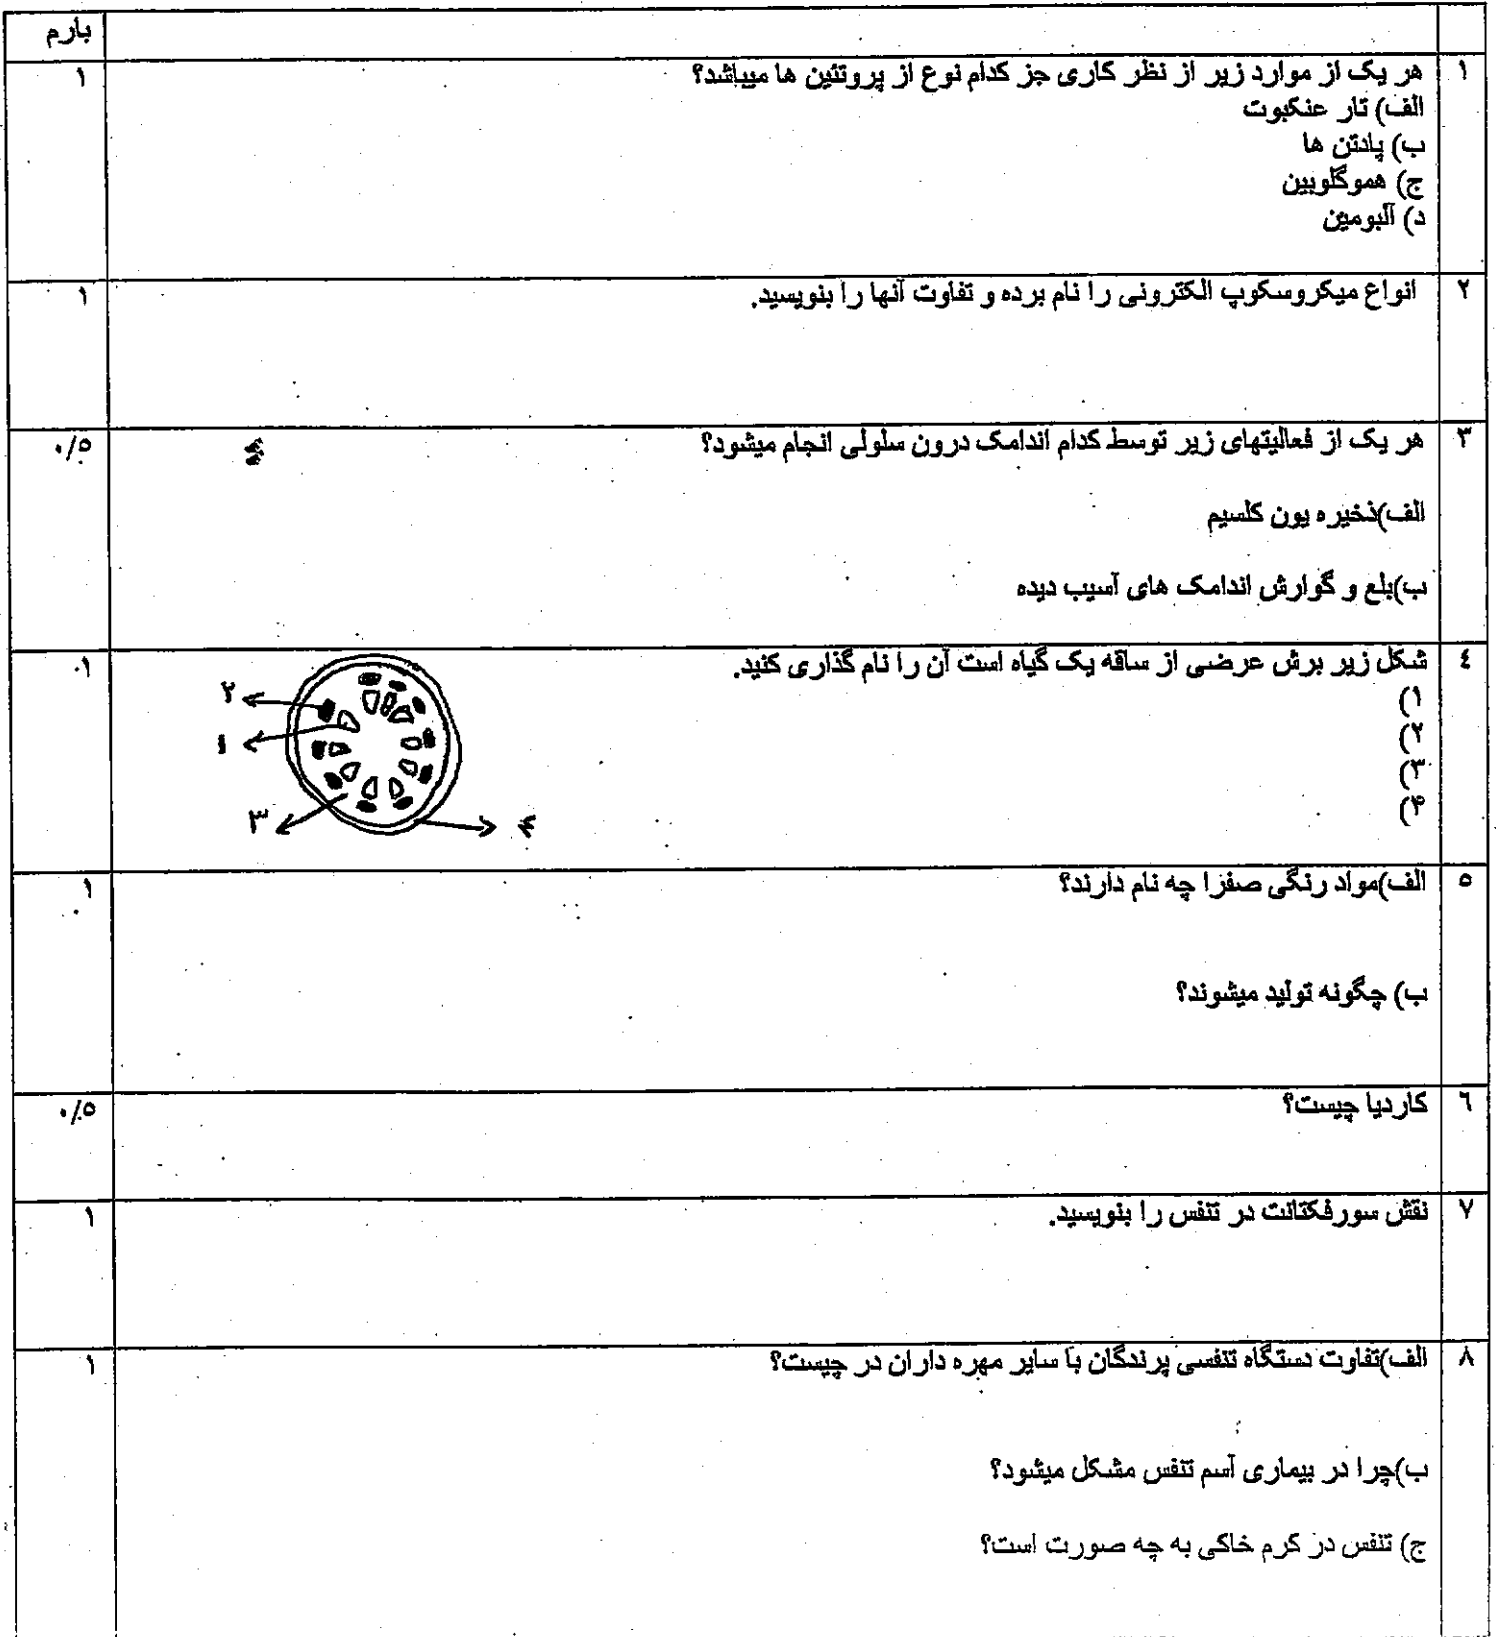 بارم
۱ هر یک از موارد زیر از نظر کاری جز کدام نوع از پروتئین ها میباشد؟ ۱
الف) تار عنکبوت
ب) پادتن ها
ج) هموگلوبین
د) آلبومین
۲ انواع میکروسکوپ الکترونی را نام برده و تفاوت آنها را بنویسید. ۱
۳ هر یک از فعالیتهای زیر توسط کدام اندامک درون سلولی انجام میشود؟ ۰/۵
الف)ذخیره یون کلسیم
ب)بلع و گوارش اندامک های آسیب دیده
٤ شکل زیر برش عرضی از ساقه یک گیاه است آن را نام گذاری کنید. ۱
۱)
۲)
۳)
۴)
۲
۱
۳
۴
٥ الف)مواد رنگی صفرا چه نام دارند؟ ۱
ب) چگونه تولید میشوند؟
٦ کاردیا چیست؟ ۰/۵
۷ نقش سورفکتانت در تنفس را بنویسید. ۱
۸ الف)تفاوت دستگاه تنفسی پرندگان با سایر مهره داران در چیست؟ ۱
ب)چرا در بیماری آسم تنفس مشکل میشود؟
ج) تنفس در کرم خاکی به چه صورت است؟